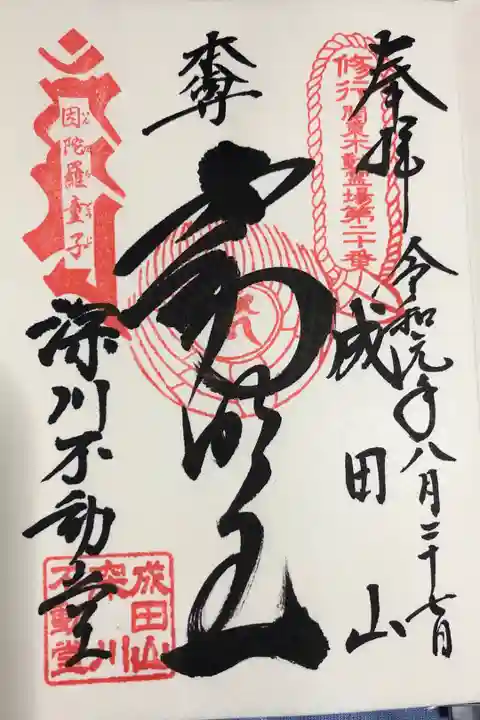 奉拝
令和元年八月二十七日
修行関東不動霊場第二十番
成田山
本尊
不動明王
因陀羅童子
深川不動堂
成田山
深川
不動堂